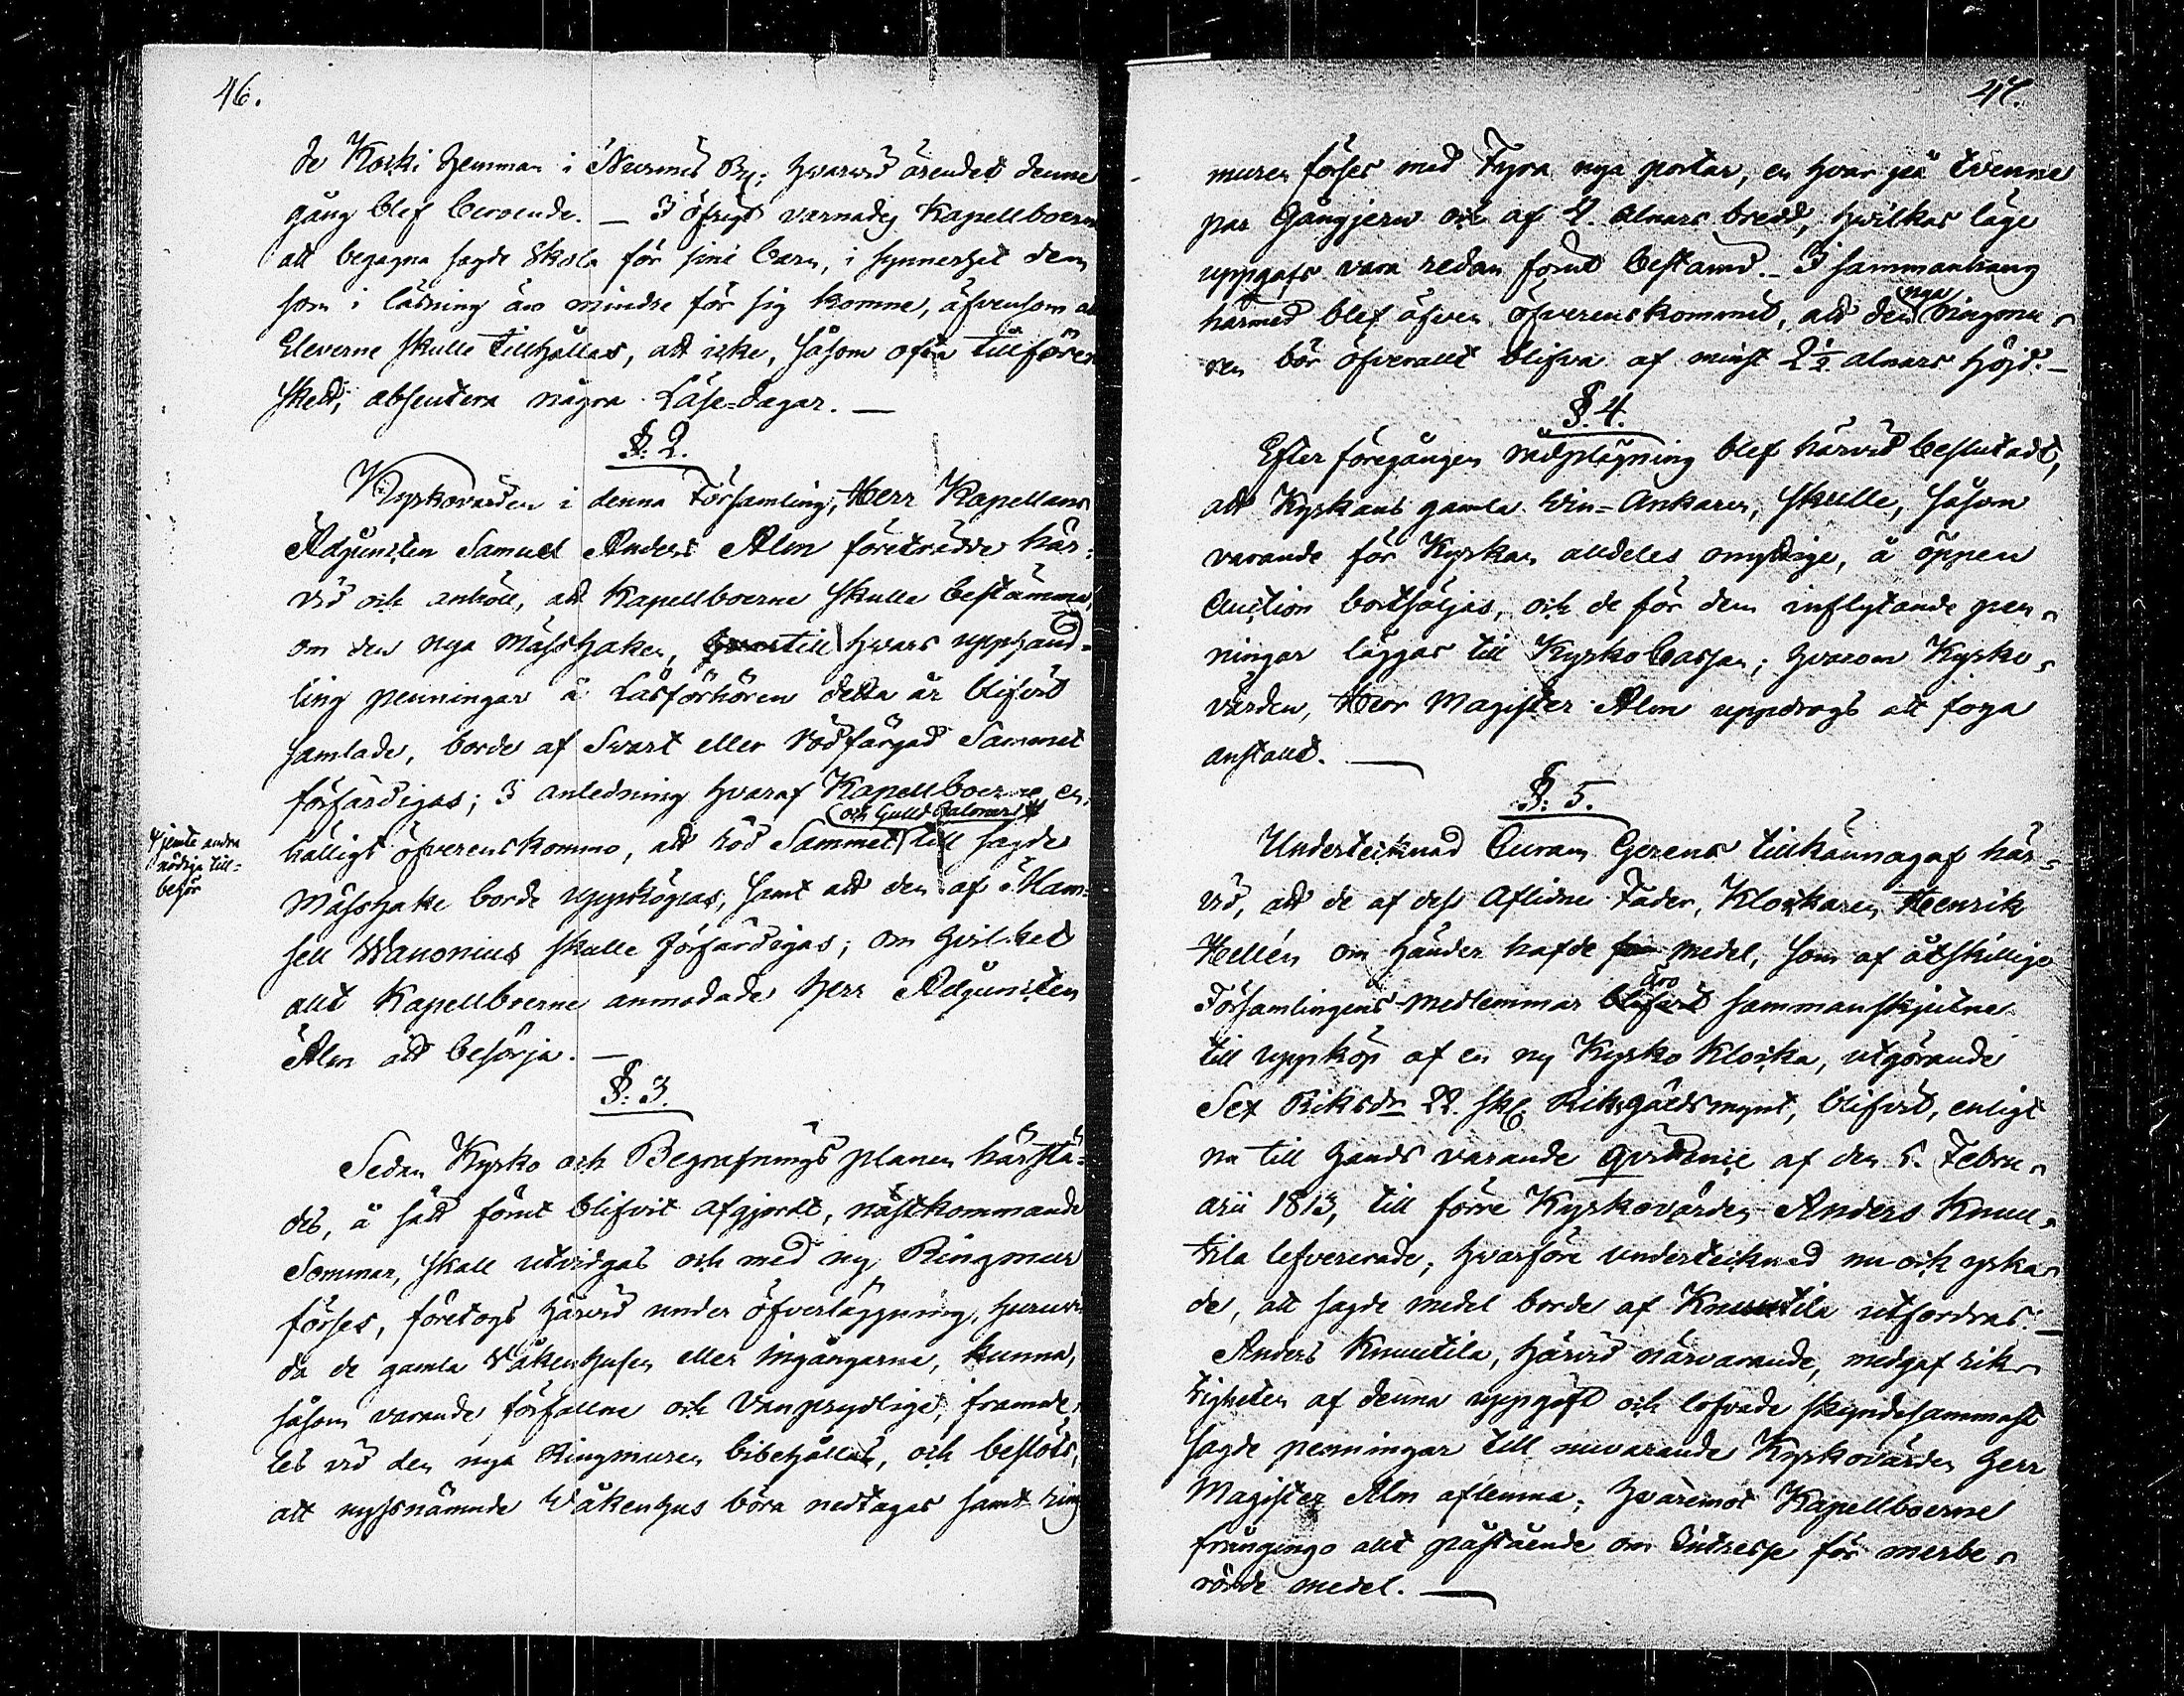 46.
de Koski Hemman i Nurmis By; hvarvid ärendet denne
gång blef beroende. — I öfrigt varnades Kapellboerne
att begagna sagde Skola för sine barn, i synnerhet dem
som i läsning äro mindre för sig komne, äfvensom att
Eleverne skulle tillhållas, att icke, såsom ofta tillförene
skedt, absentera några Läse-dagar. —
§. 2.
Kyrkovärden i denna Församling, Herr Kapellans
Adjuncten Samuel Anders Alm företrädde här-
vid och anhöll, att Kapellboerne skulle bestämma,
om den nya Mässhaken, till hvars upphand-
ling penningar å Läsförhören detta år blifvit
samlade, borde af Svart eller rödfärgad Sammet
förfärdigas; I anledning hvaraf Kapellboerne en-
och Guld Galoner #
hälligt öfverenskommo, att röd Sammet till sagde
# jemte andra
nödiga till-
behör
Mässhake borde uppköpas, samt att den af Mam-
sell Wanonius skulle förfärdigas; om hvilket
allt Kapellboerne anmodade Herr Adjuncten
Alm att besörja. —
§. 3.
Sedan Kyrko och Begrafnings planen härstä-
des, å sätt förut blifvit afgjordt, nästkommande
Sommar, skall utvidgas och med ny Ringmur
förses, företogs härvid under öfverläggning, huruvi-
da de gamla Våkenhusen eller ingångarna, kunna,
såsom varande förfallne och vanprydlige, framde-
les vid den nya Ringmuren bibehållas, och beslöts,
att nyssnämnde Wåkenhus böra nedtagas samt ring
47.
muren förses med Fyra nya portar, en hvar på tvenne
par Gångjern och af 4. alnars bredd, hvilkas läge
uppgafs vara redan förut bestämd. — I sammanhang
nya
härmed blef äfven öfverenskommit, att den ringmu-
ren bör öfverallt blifva af minst 2 ½ alnars höjd. —
§. 4.
Efter föregången rådplägning blef härvid beslutadt,
att Kyrkans gamla Win-Ankaren, skulle, såsom
varande för Kyrkan alldeles onyttige, å öppen
Auction bortsäljas, och de för dem inflytande pen-
ningar läggas till Kyrko Cassan; hvarom Kyrko-
värden, Herr Magister Alm uppdrogs att foga
anstallt. —
§. 5.
Undertecknad Curam Gerens tillkännagaf här-
vid, att de af dess Aflidne Fader, Klockaren Henrik
Hellén om händer hafde medel, som af åtskillige
äro
Församlingens Medlemmar blifvit sammanskjutne
till uppköp af en ny Kyrko Klocka, utgörande
Sex Riksdr 22. sk. Riksgäldsmynt, blifvit, enligt
nu till hands varande qvittence af den 5. Febru-
arii 1813, till förre Kyrkovärden Anders Knuu-
tila lefvererade; hvarföre undertecknad nu ock yrka-
de, att sagde medel borde af Knuutila utfordras. —
Anders Knuutila, härvid närvarande, medgaf rik-
tigheten af denna uppgift och lofvade skyndesammast
sagde penningar till nuvarande Kyrkovärden Herr
Magister Alm aflemna; hvaremot Kapellboerne
frångingo allt påstående om Intresse för merbe-
rörde medel. —